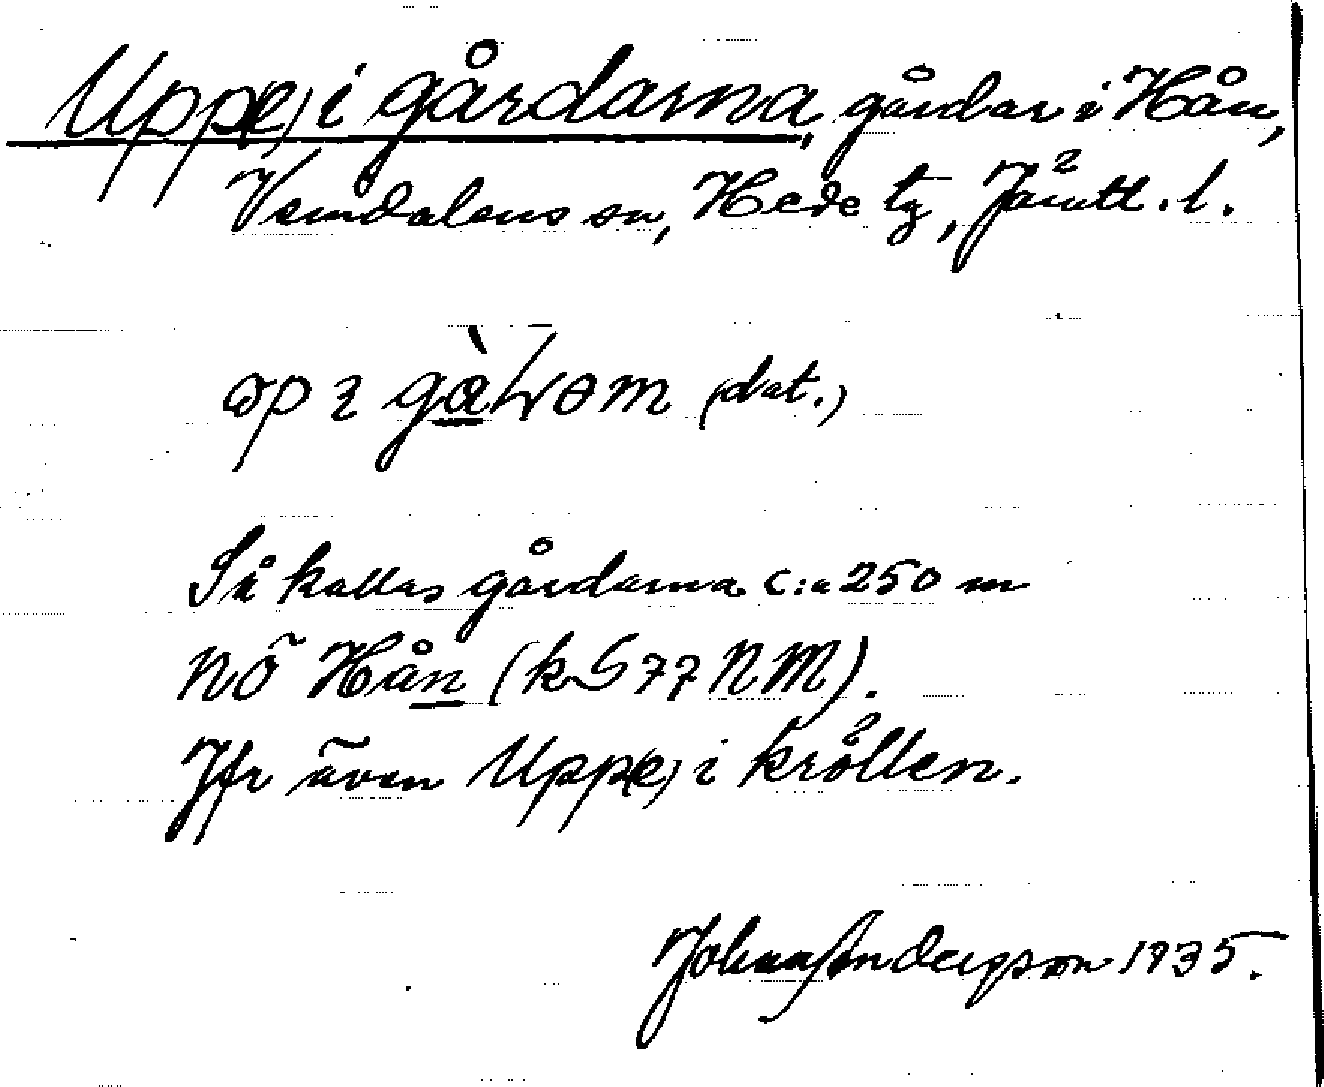 Upp(e) i gårdarna, gårdar i Hån,
Vemdalens sn, Hede tg, Jämtl. l.
(dat.)
Så kallas gårdarna c:a 250 m
NÖ Hån (kS 77 NM).
Jfr även Upp(e) i kröllen.
Johan Anderpson 1935.